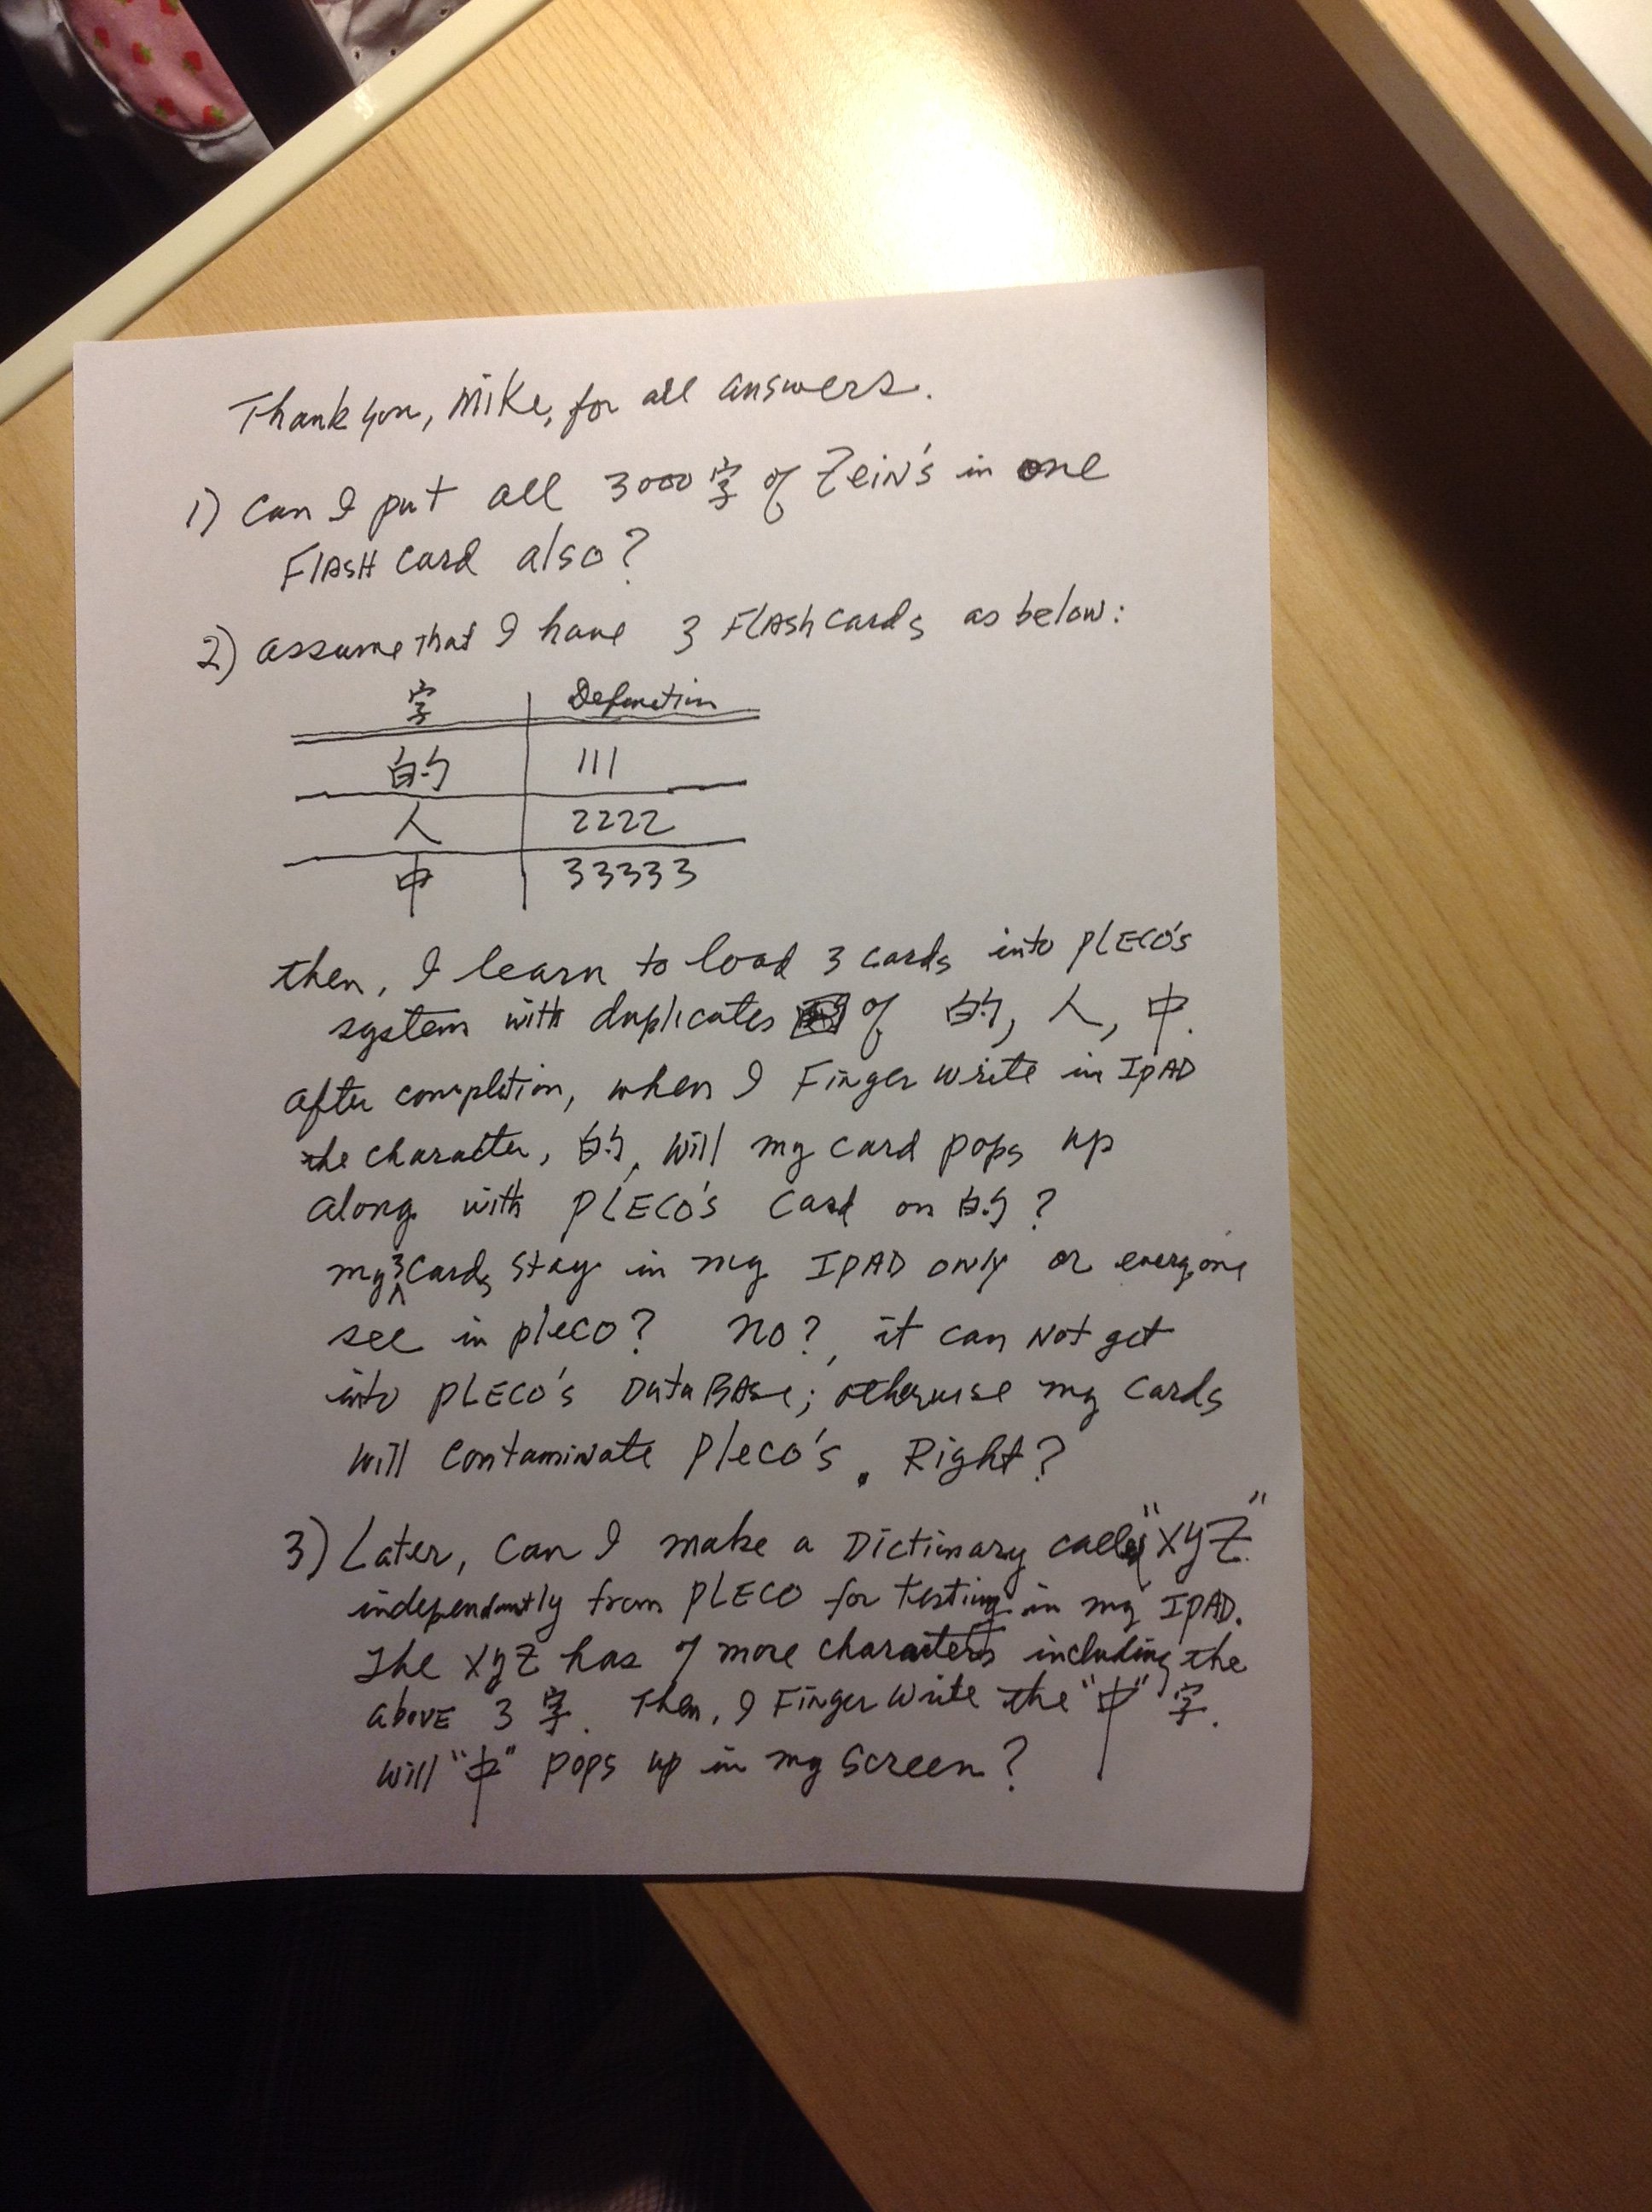 Thank you, Mike, for all answers.
1) Can I put all 3000 字 of Zein's in one
FLASH card also?
2) assume that I have 3 FLASH cards as below:
字 Definition
的 111
人 2222
中 33333
then, I learn to load 3 cards into PLECO's
system with duplicates of 的, 人, 中.
after completion, when I Finger write in IPAD
the character, 的, will my card pops up
along with PLECO's card on 的?
my 3 cards stay in my IPAD only or everyone
see in pleco? No?, it can not get
into PLECO's DataBase; otherwise my cards
will contaminate Pleco's. Right?
3) Later, can I make a Dictionary called "XYZ"
independently from PLECO for testing in my IPAD.
The XYZ has 7 more characters including the
above 3 字. Then, I Finger Write the "中" 字.
will "中" pops up in my screen?